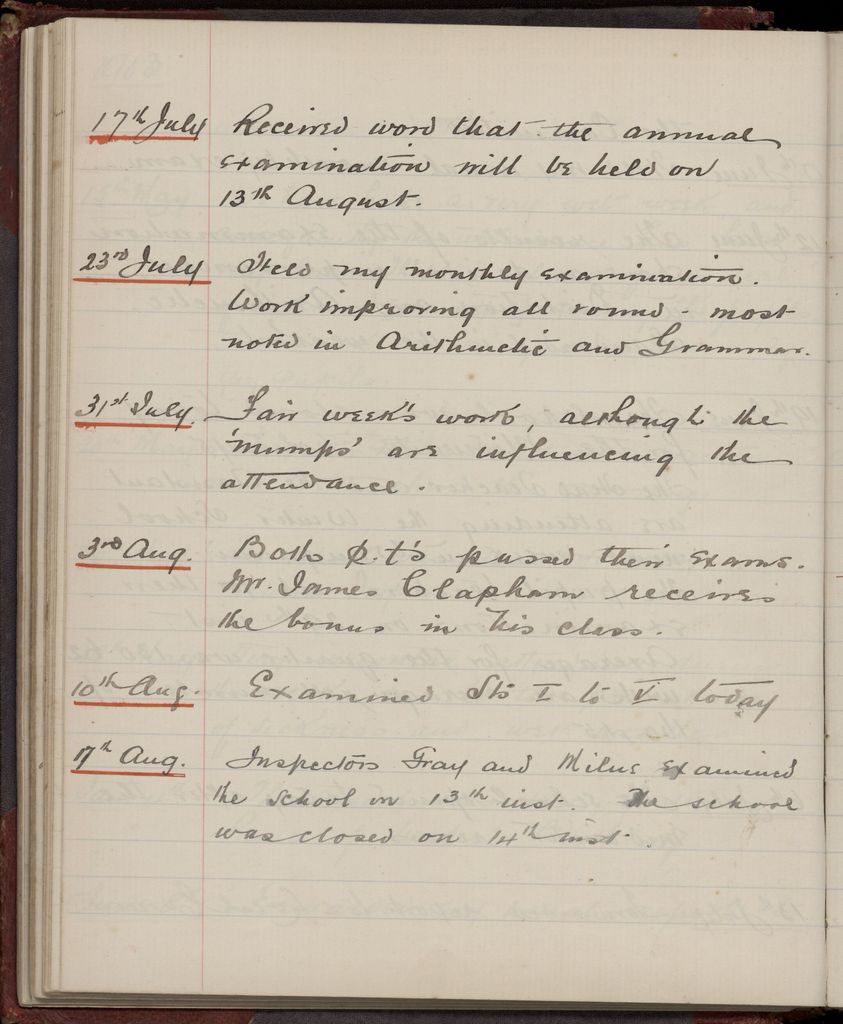 17th July Received word that the annual
examination will be held on
13th August.
23rd July Held my monthly examination.
Work improving all round - most
noted in Arithmetic and Grammar.
31st July. Fair week's work, although the
'mumps' are influencing the
attendance.
3rd Aug. Both P.t's passed their exams.
Mr. James Clapham receives
the bonus in his class.
10th Aug. Examined Sts I to V today
17th Aug. Inspectors Gray and Milne examined
the school on 13th inst. The school
was closed on 14th inst.